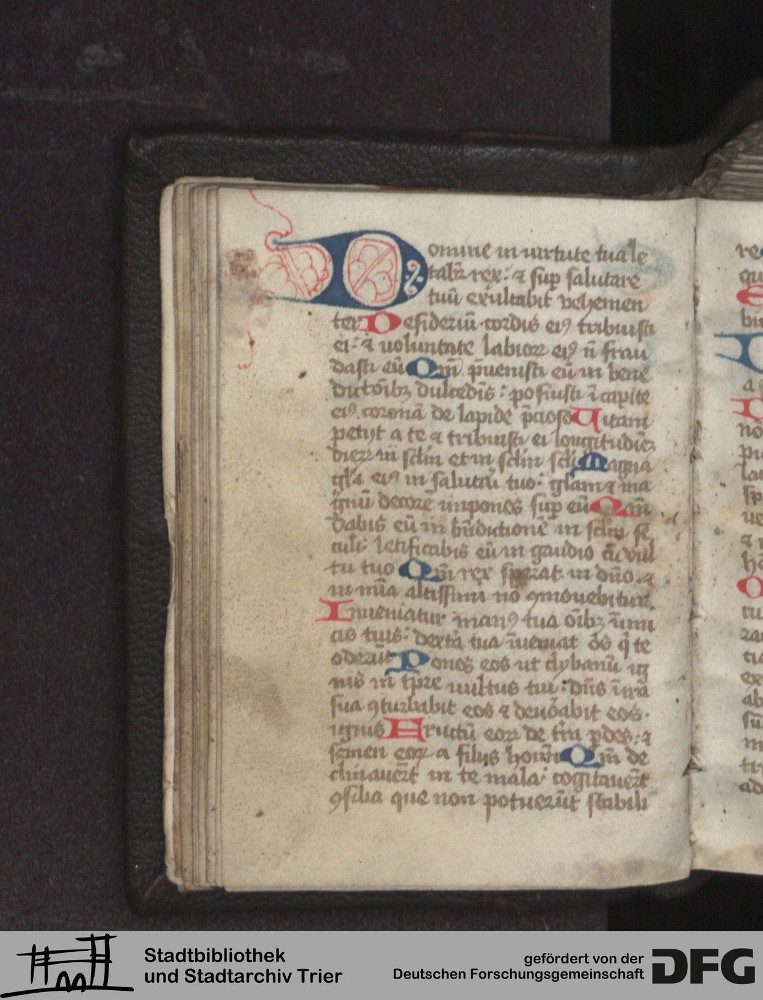 Domine in uirtute tua le
tabr̄ rex: ⁊ sup̄ salutare
tuū exultabit vehemen
ter Desideriū cordis ei⁹ tribuisti
ei: ⁊ uoluntate labioꝝ ei⁹ nō frau
dasti eū Qm̄ p̄uenisti eū in bene
dictōibꝫ dulcedīs: posuisti ī capite
ei⁹ coronā de lapide p̄cioso Uitam
petijt a te ⁊ tribuisti ei longitudīeꝫ
dieꝝ in sclm̄ et in sclm̄ scli Magna
gl̄a ei⁹ in salutāi tuo: glam ⁊ ma
gnū decorē impones sup̄ eū Qm̄
dabis eū in bn̄dictionē in sclm̄ se
culi: letificabis eū in gaudio cū vul
tu tuo Qm̄ rex sperat in dn̄o ⁊
in mīa altissimi nō ꝯmouebitur
Inueniatur man⁹ tua oībꝫ inimi
cis tuis: dext̄a tua īueniat ōs q̄ te
oderūt Pones eos ut clybanū ig
nis in tp̄re uultus tui: dn̄s ī irā
sua ꝯturbabit eos ⁊ deuōabit eos
ignis Fructū eoꝝ de t̄ra p̄des: ⁊
semen eoꝝ a filijs homīn Qm̄ de
clinauerūt in te mala: cogitauerūt
ꝯsilia que non potuerūt stabili
Stadtbibliothek
und Stadtarchiv Trier
gefördert von der
Deutschen Forschungsgemeinschaft
DFG